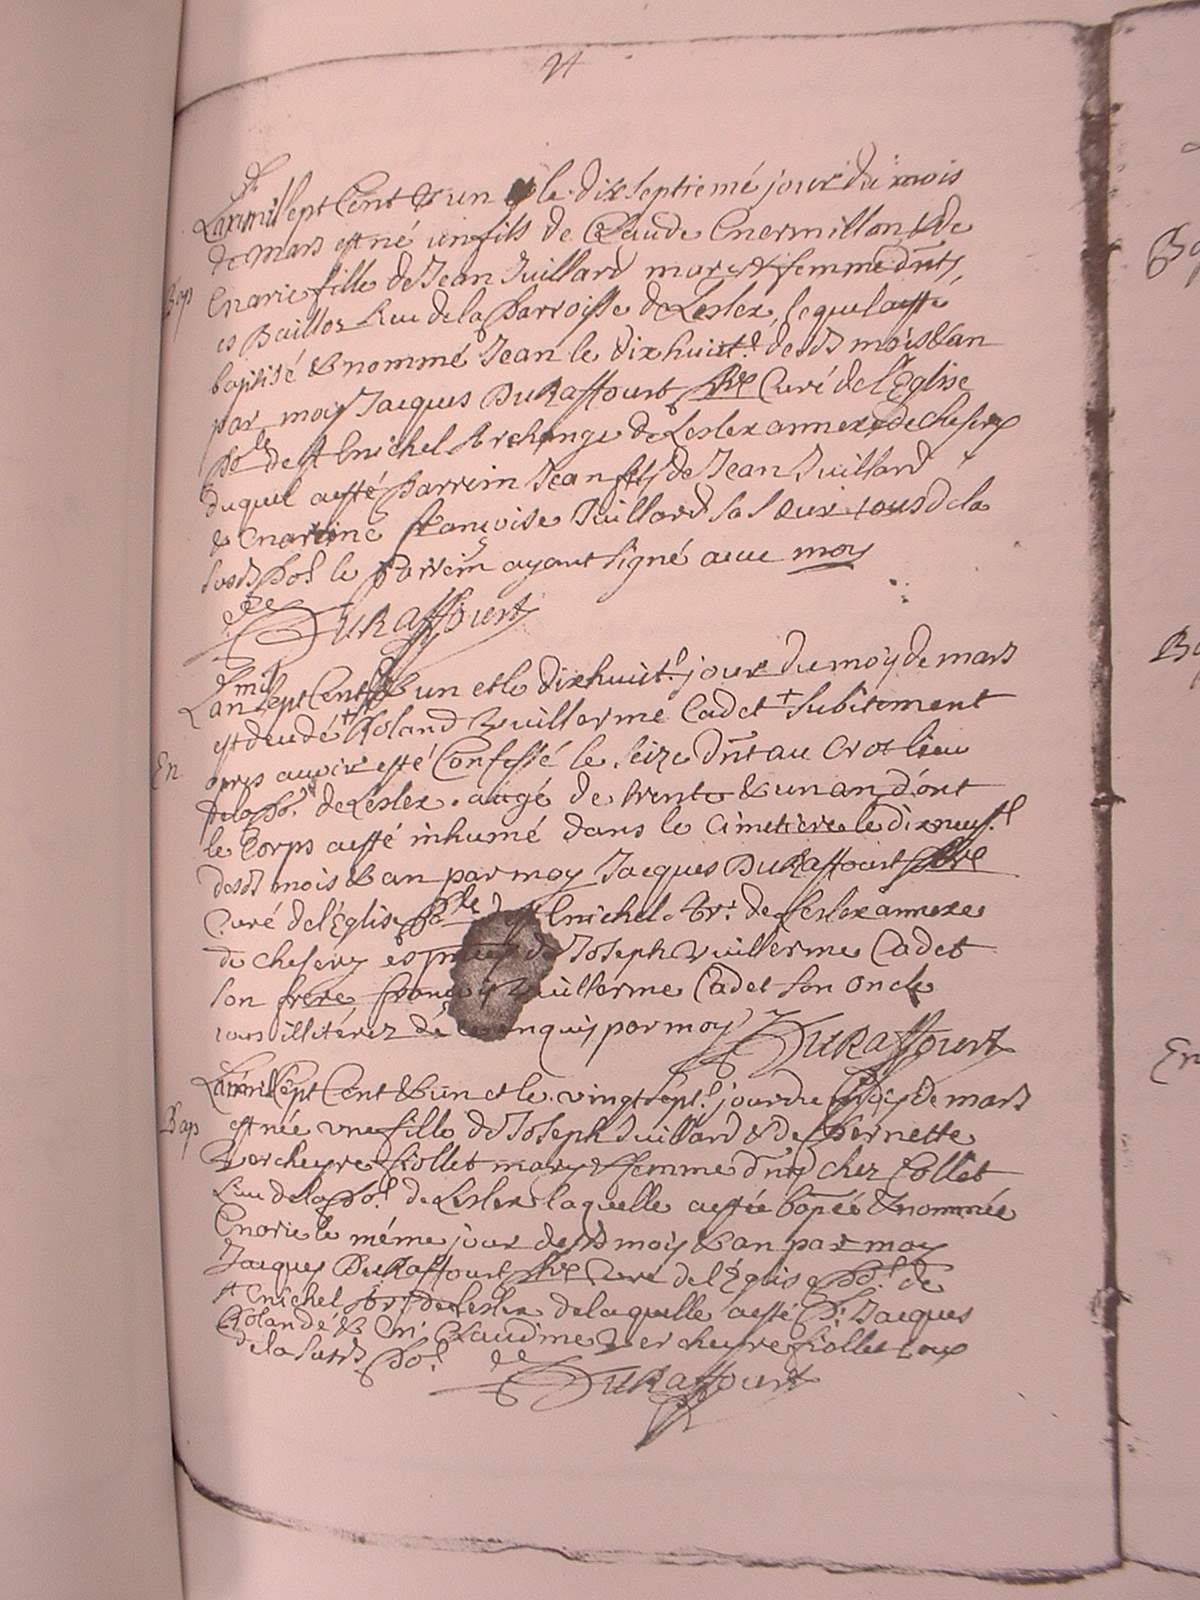 L'an mil sept Cent & un le dix septieme jour du mois
de Mars est né un fils de Claude Mermillon & de
Bap Marie fille de Jean Juillard mary & femme
es Baillos Lieu de la Parroisse de Leslex, lequel a esté
baptisé & nommé Jean le dixhuict.e desd. mois & an
par moy Jacques Duraffourt Pbre Curé de l'Eglise
de St Michel Archange de Leslex annexe de chesery
duquel a esté Parrein Jean fils de Jean Juillard
& Marrine françoise Juillard sa soeur tous de la
susd. Po.e le Parrein ayant signé avec moy
Duraffourt
L'an mil sept Cent & un et le dixhuict.e jour du moy de mars
est décédé Roland Vuillerme Cadet subitement
En apres avoir esté Confessé le seize au Crot lieu
de la Po.e de Leslex, aagé de trente & un an dont
le Corps a esté inhumé dans le Cimetiere le dixneuf.e
desd. mois & an par moy Jacques Duraffourt Pbre
Curé de l'Eglise St Michel Ar. de Leslex annexe
de chesery Joseph Vuillerme Cadet
son frere, Vuillerme Cadet son oncle
illitérez par moy Duraffourt
L'an mil sept Cent & un et le vingt sept.e jour du moy de mars
Bap est née une fille de Joseph Juillard & de Pernette
Vercheyre mary & femme chez Collet
Lieu de la Po.e de Leslex laquelle a esté bapée & nommée
Marie le méme jour desd. moy & an par moy
Jacques Duraffourt Pbre Curé de l'Eglise Po.e de
St Michel Ar. de Leslex de laquelle a esté P. Jacques
Rolandé & M. Claudine Vercheyre
de la susd. Po.e
Duraffourt